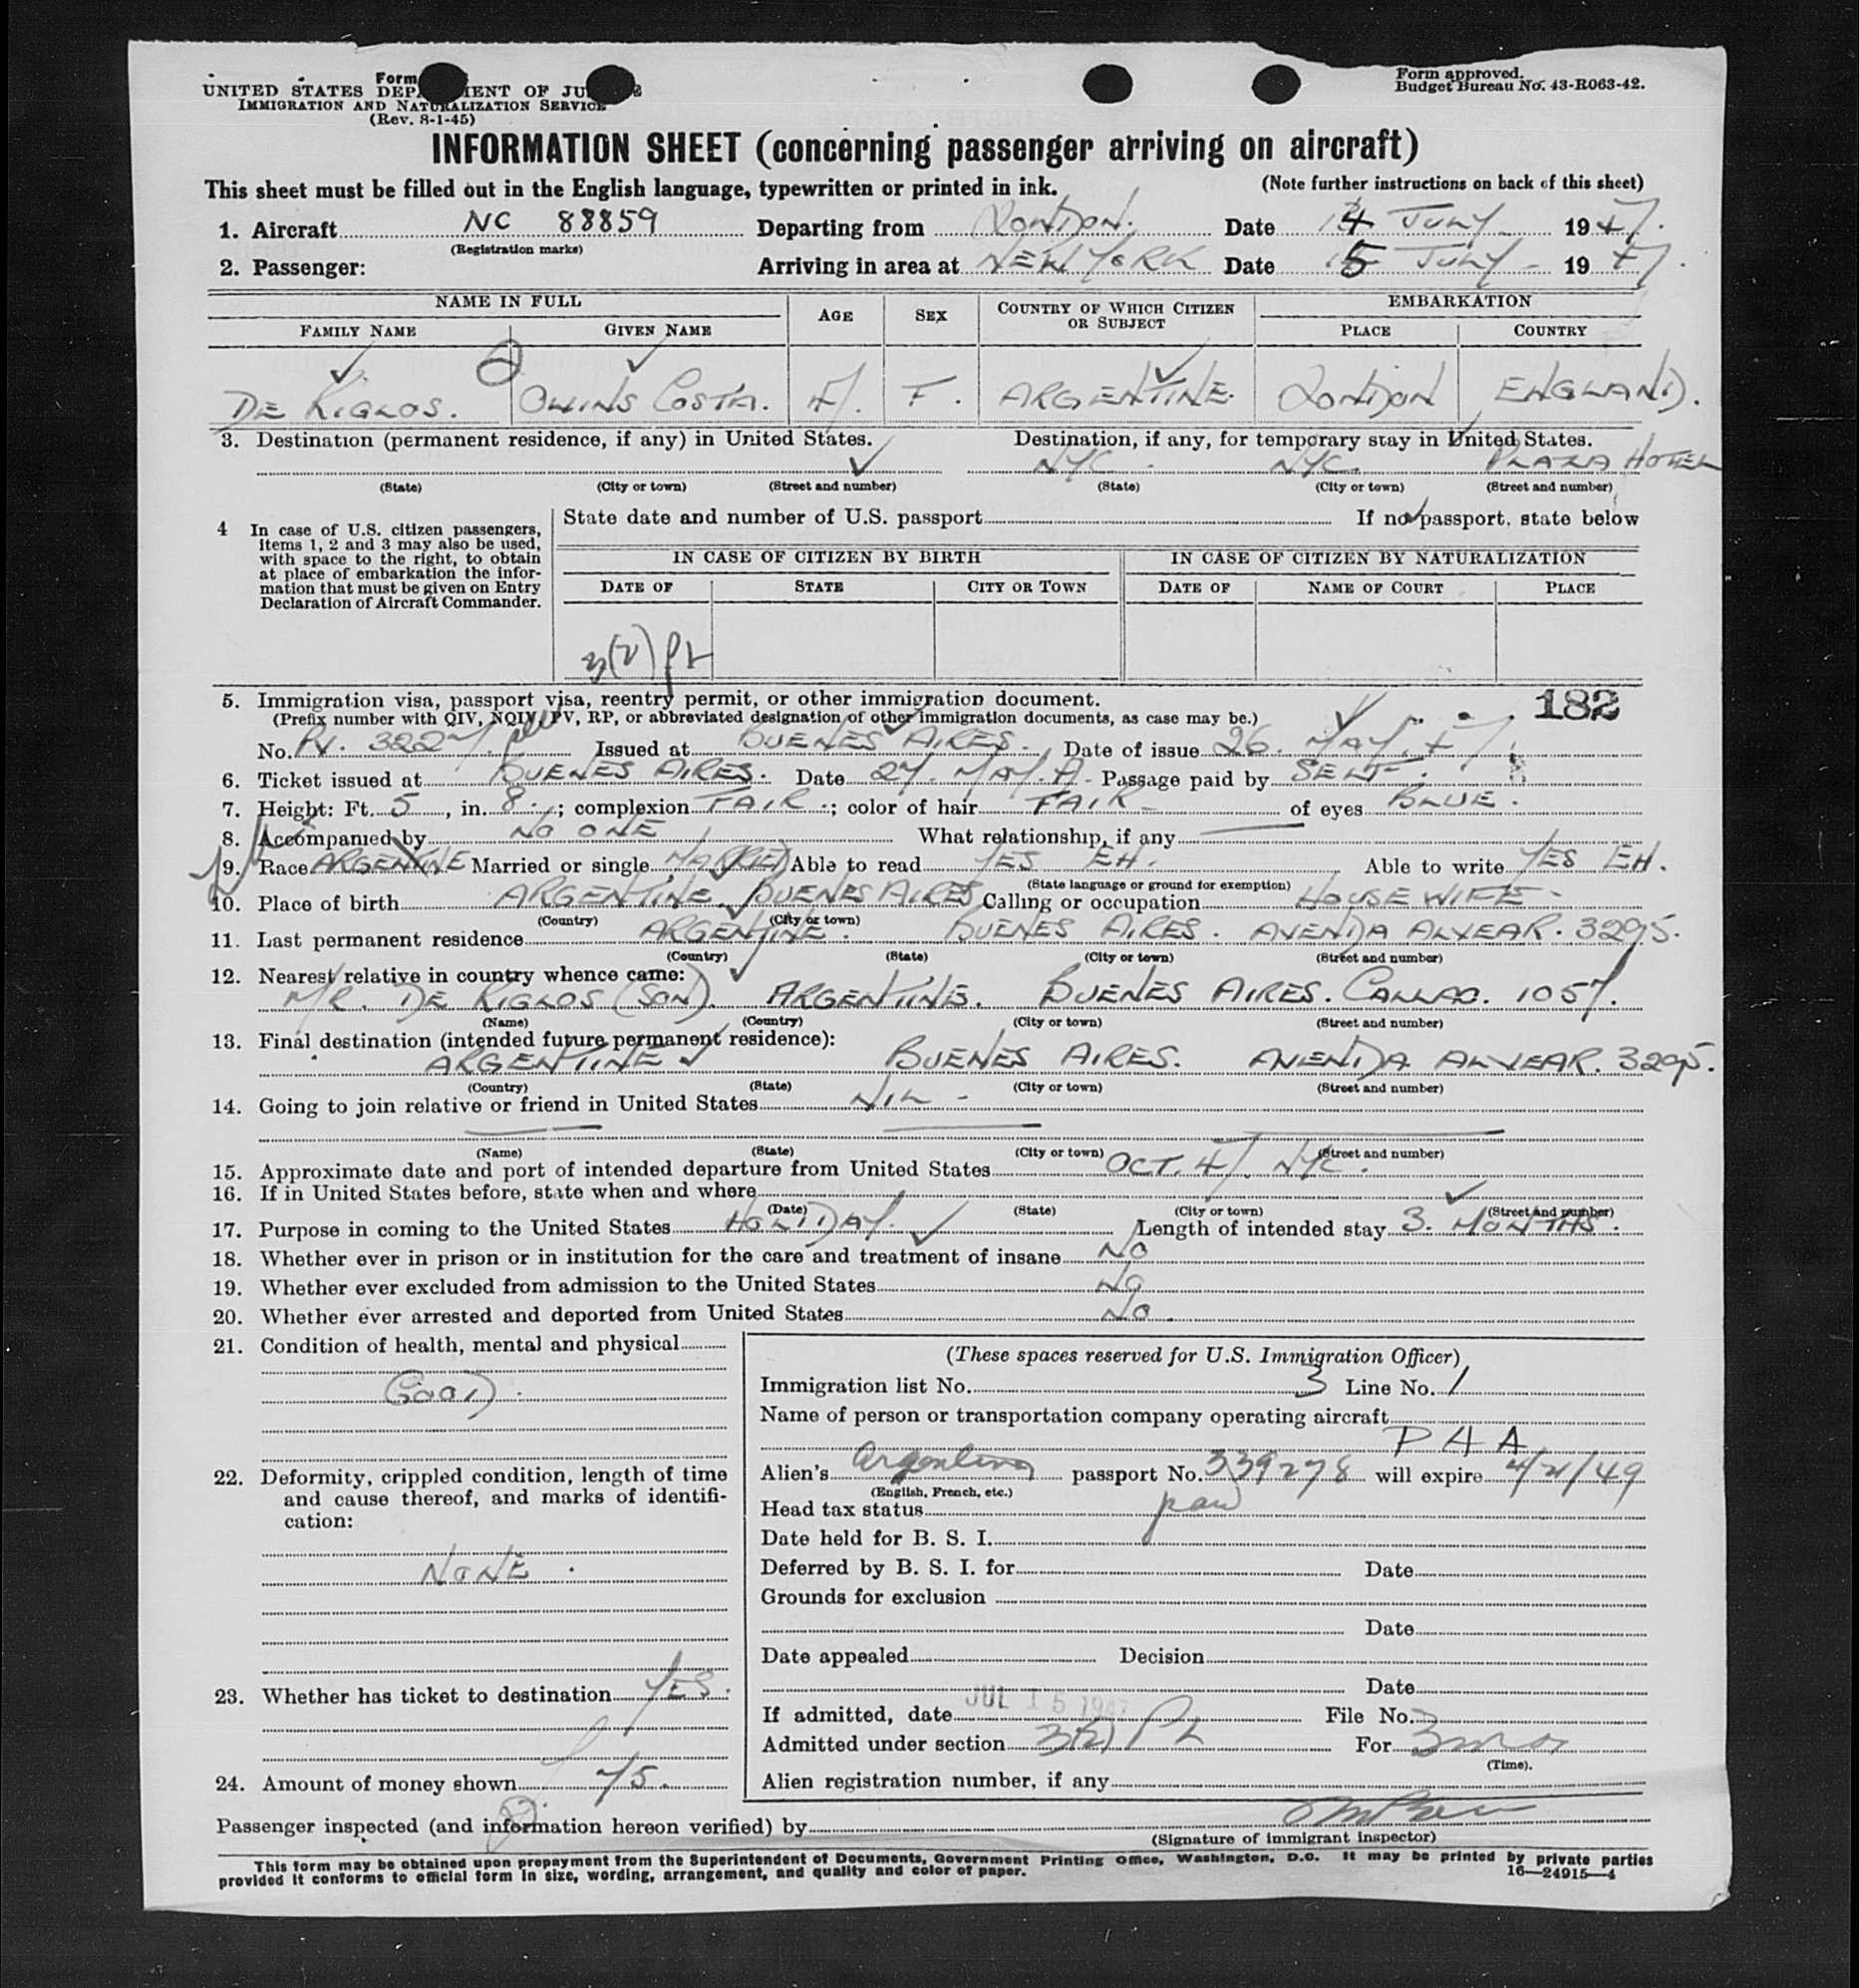 Form
UNITED STATES DEPARTMENT OF JUSTICE
IMMIGRATION AND NATURALIZATION SERVICE
(Rev. 8-1-45)
Form approved.
Budget Bureau No. 43-R063-42.
INFORMATION SHEET (concerning passenger arriving on aircraft)
This sheet must be filled out in the English language, typewritten or printed in ink. (Note further instructions on back of this sheet)
1. Aircraft NC 88859 Departing from LONDON. Date 14 JULY 1947.
(Registration marks)
2. Passenger: Arriving in area at NEW YORK Date 15 JULY - 1947.
NAME IN FULL AGE SEX COUNTRY OF WHICH CITIZEN OR SUBJECT EMBARKATION
FAMILY NAME GIVEN NAME PLACE COUNTRY
DE RIGLOS. COSTA. 47. F. ARGENTINE. LONDON ENGLAND.
3. Destination (permanent residence, if any) in United States. Destination, if any, for temporary stay in United States.
NYC. NYC. PLAZA HOTEL
(State) (City or town) (Street and number) (State) (City or town) (Street and number)
4 In case of U.S. citizen passengers, items 1, 2 and 3 may also be used, with space to the right, to obtain at place of embarkation the information that must be given on Entry Declaration of Aircraft Commander.
State date and number of U.S. passport If no passport, state below
IN CASE OF CITIZEN BY BIRTH IN CASE OF CITIZEN BY NATURALIZATION
DATE OF STATE CITY OR TOWN DATE OF NAME OF COURT PLACE
3(2) PL
5. Immigration visa, passport visa, reentry permit, or other immigration document. 182
(Prefix number with QIV, NQIV, PV, RP, or abbreviated designation of other immigration documents, as case may be.)
No. PV. 3227. Issued at BUENES AIRES. Date of issue 26. MAY. 47.
6. Ticket issued at BUENES AIRES. Date 27. MAY. 47. Passage paid by SELF.
7. Height: Ft. 5, in. 8.; complexion FAIR.; color of hair FAIR - of eyes BLUE.
8. Accompanied by NO ONE What relationship, if any
9. Race ARGENTINE Married or single MARRIED Able to read YES EH. Able to write YES EH.
(State language or ground for exemption)
10. Place of birth ARGENTINE BUENES AIRES Calling or occupation HOUSE WIFE -
(Country) (City or town)
11. Last permanent residence ARGENTINE. BUENES AIRES. AVENIDA ALVEAR. 3295.
(Country) (State) (City or town) (Street and number)
12. Nearest relative in country whence came:
MR. DE RIGLOS (SON). ARGENTINE. BUENES AIRES. CALLAO. 1057.
(Name) (Country) (City or town) (Street and number)
13. Final destination (intended future permanent residence):
ARGENTINE BUENES AIRES. AVENIDA ALVEAR. 3295.
(Country) (State) (City or town) (Street and number)
14. Going to join relative or friend in United States NIL -
(Name) (State) (City or town) (Street and number)
15. Approximate date and port of intended departure from United States OCT. 47. NYC.
16. If in United States before, state when and where
(Date) (State) (City or town) (Street and number)
17. Purpose in coming to the United States HOLIDAY. Length of intended stay 3. MONTHS.
18. Whether ever in prison or in institution for the care and treatment of insane NO
19. Whether ever excluded from admission to the United States NO
20. Whether ever arrested and deported from United States NO.
21. Condition of health, mental and physical
GOOD.
22. Deformity, crippled condition, length of time and cause thereof, and marks of identification:
NONE.
23. Whether has ticket to destination YES.
24. Amount of money shown 75.
(These spaces reserved for U.S. Immigration Officer)
Immigration list No. 3 Line No. 1
Name of person or transportation company operating aircraft
PAA
Alien's Argentina passport No. 339278 will expire 4/21/49
(English, French, etc.)
Head tax status paid
Date held for B. S. I.
Deferred by B. S. I. for Date
Grounds for exclusion
Date
Date appealed Decision
Date
If admitted, date JUL 15 1947 File No.
Admitted under section 3(2) PL For 3 mos
(Time).
Alien registration number, if any
Passenger inspected (and information hereon verified) by
(Signature of immigrant inspector)
This form may be obtained upon prepayment from the Superintendent of Documents, Government Printing Office, Washington, D.C. It may be printed by private parties
provided it conforms to official form in size, wording, arrangement, and quality and color of paper. 16—24915—4